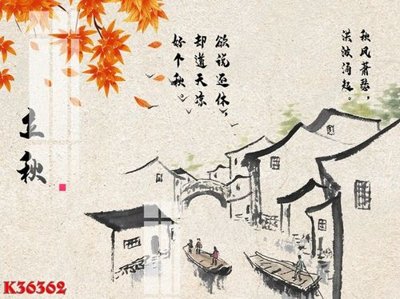 秋风萧瑟，
洪波涌起。
欲说还休，
却道天凉
好个秋。
立秋
K36362